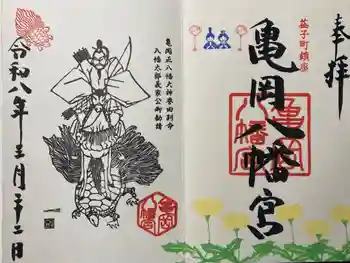 奉拝
荏子町鎮座
亀岡八幡宮
亀岡八幡
亀岡正八幡大神誉田別命
八幡太郎義家公御勧請
亀岡八幡
令和八年三月二十二日